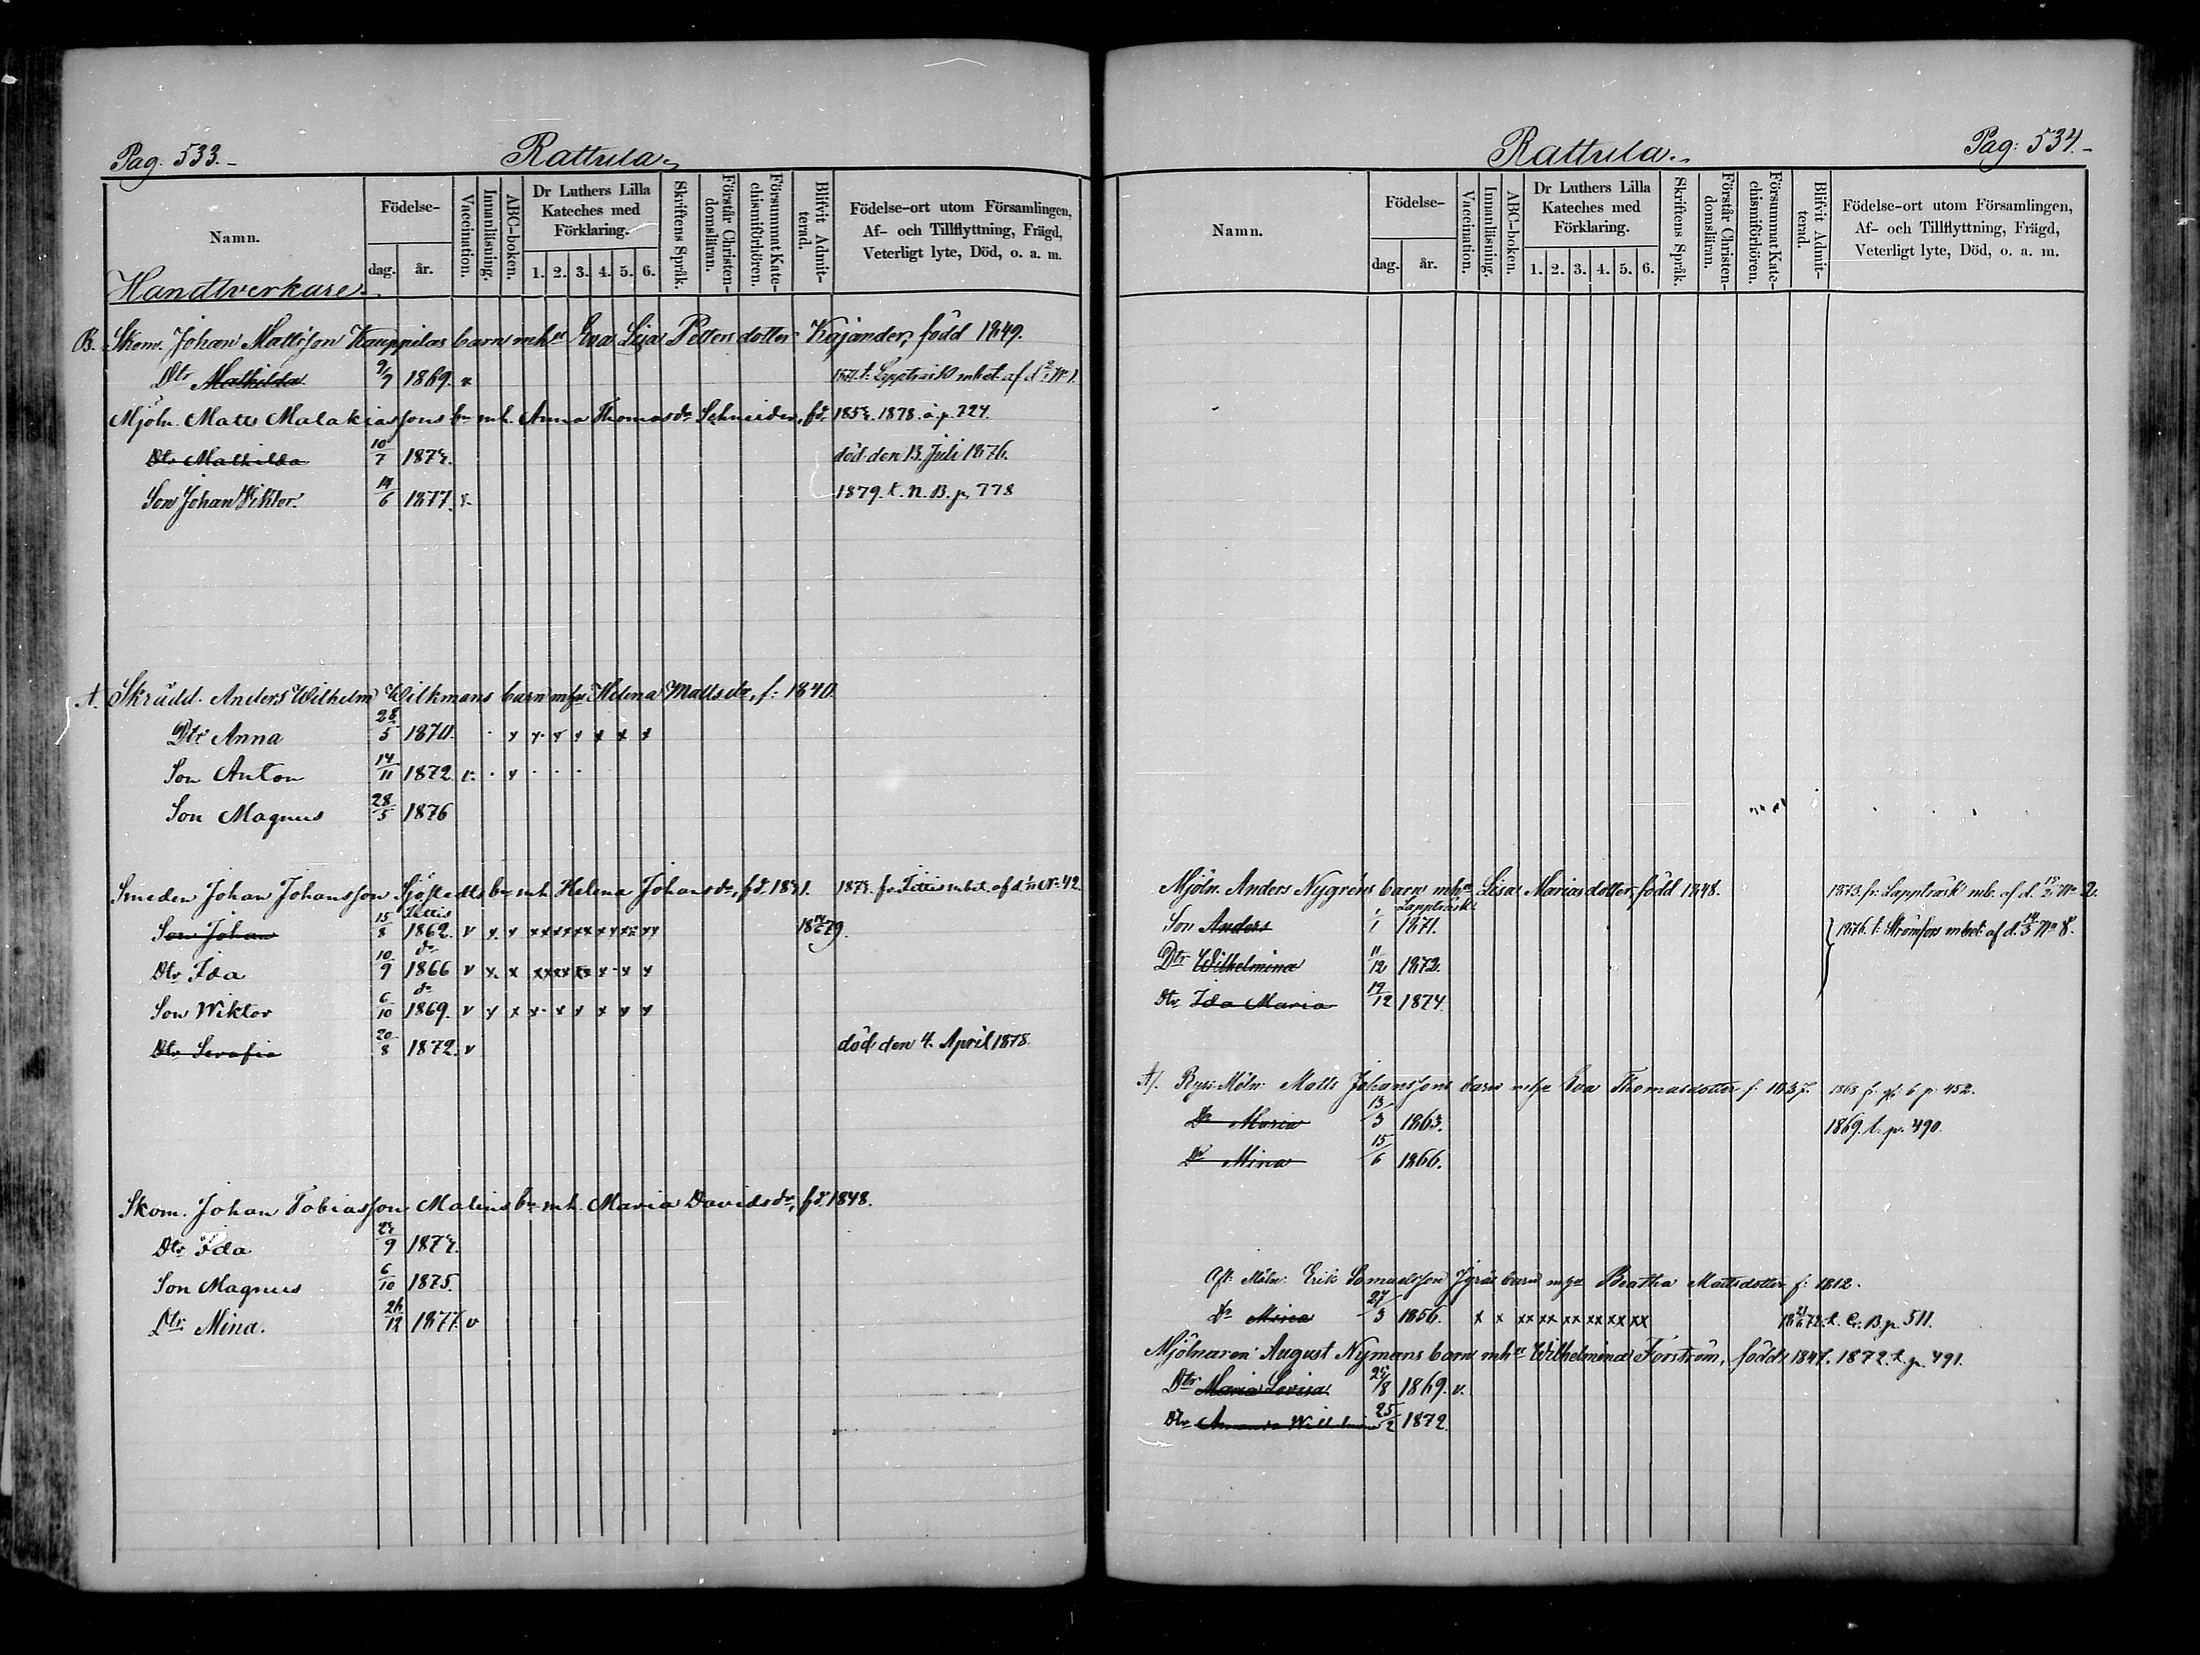 Pag: 533.
Rattula.
Namn.
Födelse-
dag. år.
Vaccination.
Innanläsning.
ABC-boken.
Dr Luthers Lilla Kateches med Förklaring.
1. 2. 3. 4. 5. 6.
Skriftens Språk.
Förstår Christendomsläran.
Försummat Katechismiförhören.
Blifvit Admitterad.
Födelse-ort utom Församlingen, Af- och Tillflyttning, Frägd, Veterligt lyte, Död, o. a. m.
Handtverkare.
B. Skom. Johan Mattsson Kauppilas barn mhu Eva Lisa Pettersdotter Kajander, född 1849.
Dtr Mathilda 9/9 1869. v. t. Lappträsk mbet af d. No 1.
Mjöln. Matts Malakiassons bn mh. Anna Thomasdr Schneider, fd. 1878. å p. 224.
Dtr Mathilda 10/7 död den 13. Juli 1876.
Son Johan Viktor. 14/6 1877. v. 1879. t. N. B. p. 778
A. Skrädd. Anders Wilhelm Wilkmans barn mhu Helena Mattsdr, f: 1840.
Dtr Anna 28/5 1870. x x x x x x x
Son Anton 14/11 1872 v. x
Son Magnus 28/5 1876
Smeden Johan Johansson Sjöstedts bn mh. Helena Johansdr, fd. fr. Littis mbet af d. No 42.
Littis
Son Johan 15/8 1862. v x x xx xx xx xx xx xx 18 79.
do
Dtr Ida 10/9 1866 v x x xx xx xx x x x
do
Son Wiktor 6/10 1869. v x x x x x x x x
Dtr Serafia 20/8 1872. v död den 4. April 1878.
Skom. Johan Tobiasson Malins bn mh. Maria Davidsdr, fd. 1848.
Dtr Ida
Son Magnus 6/10 1875.
Dtr Mina. 26/12 1877. v
Rattula.
Pag: 534.
Namn.
Födelse-
dag. år.
Vaccination.
Innanläsning.
ABC-boken.
Dr Luthers Lilla Kateches med Förklaring.
1. 2. 3. 4. 5. 6.
Skriftens Språk.
Förstår Christendomsläran.
Försummat Katechismiförhören.
Blifvit Admitterad.
Födelse-ort utom Församlingen, Af- och Tillflyttning, Frägd, Veterligt lyte, Död, o. a. m.
Mjöln. Anders Nygréns barn mhu Lisa Mariasdotter, född 1848. 1873. fr. Lappträsk mb. af d. No 2.
Lappträsk
Son Anders 1/1 1871. 1876. t. Strömfors mbet af d. 14/3 No 8.
Dtr Wilhelmina 11/12 1872.
Dtr Ida Maria 19/12 1874.
A/. Möln. Matts Johanssons barn mhu Eva Thomasdotter f: 1837. 1868 fr. p. 452.
Dr Maria 13/3 1863. 1869. t. p. 490.
Dr Mina 15/6 1866.
Afl. Möln. Erik Samuelsson barn mhu Beatha Mattsdotter f: 1812.
Dr Mina 27/3 1856. x x xx xx xx xx xx xx t. B. p. 511.
Mjölnaren August Nymans barn mhu Wilhelmina Forström, född 1847. 1872. t. p. 491.
Dtr Maria Lovisa 1869. v.
Dtr 25/2 1872.